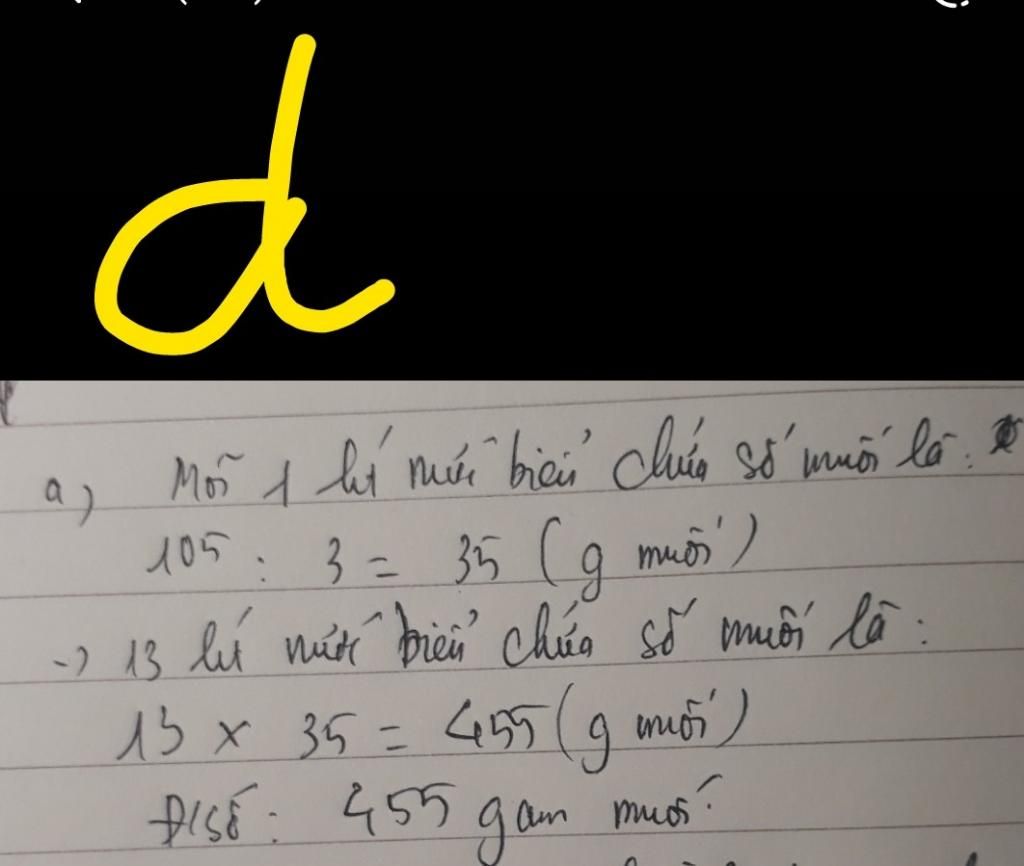 d
a) Mỗi 1 lít nước biển chứa số muối là:
105 : 3 = 35 (g muối)
-> 13 lít nước biển chứa số muối là:
13 x 35 = 455 (g muối)
Đ/số: 455 gam muối